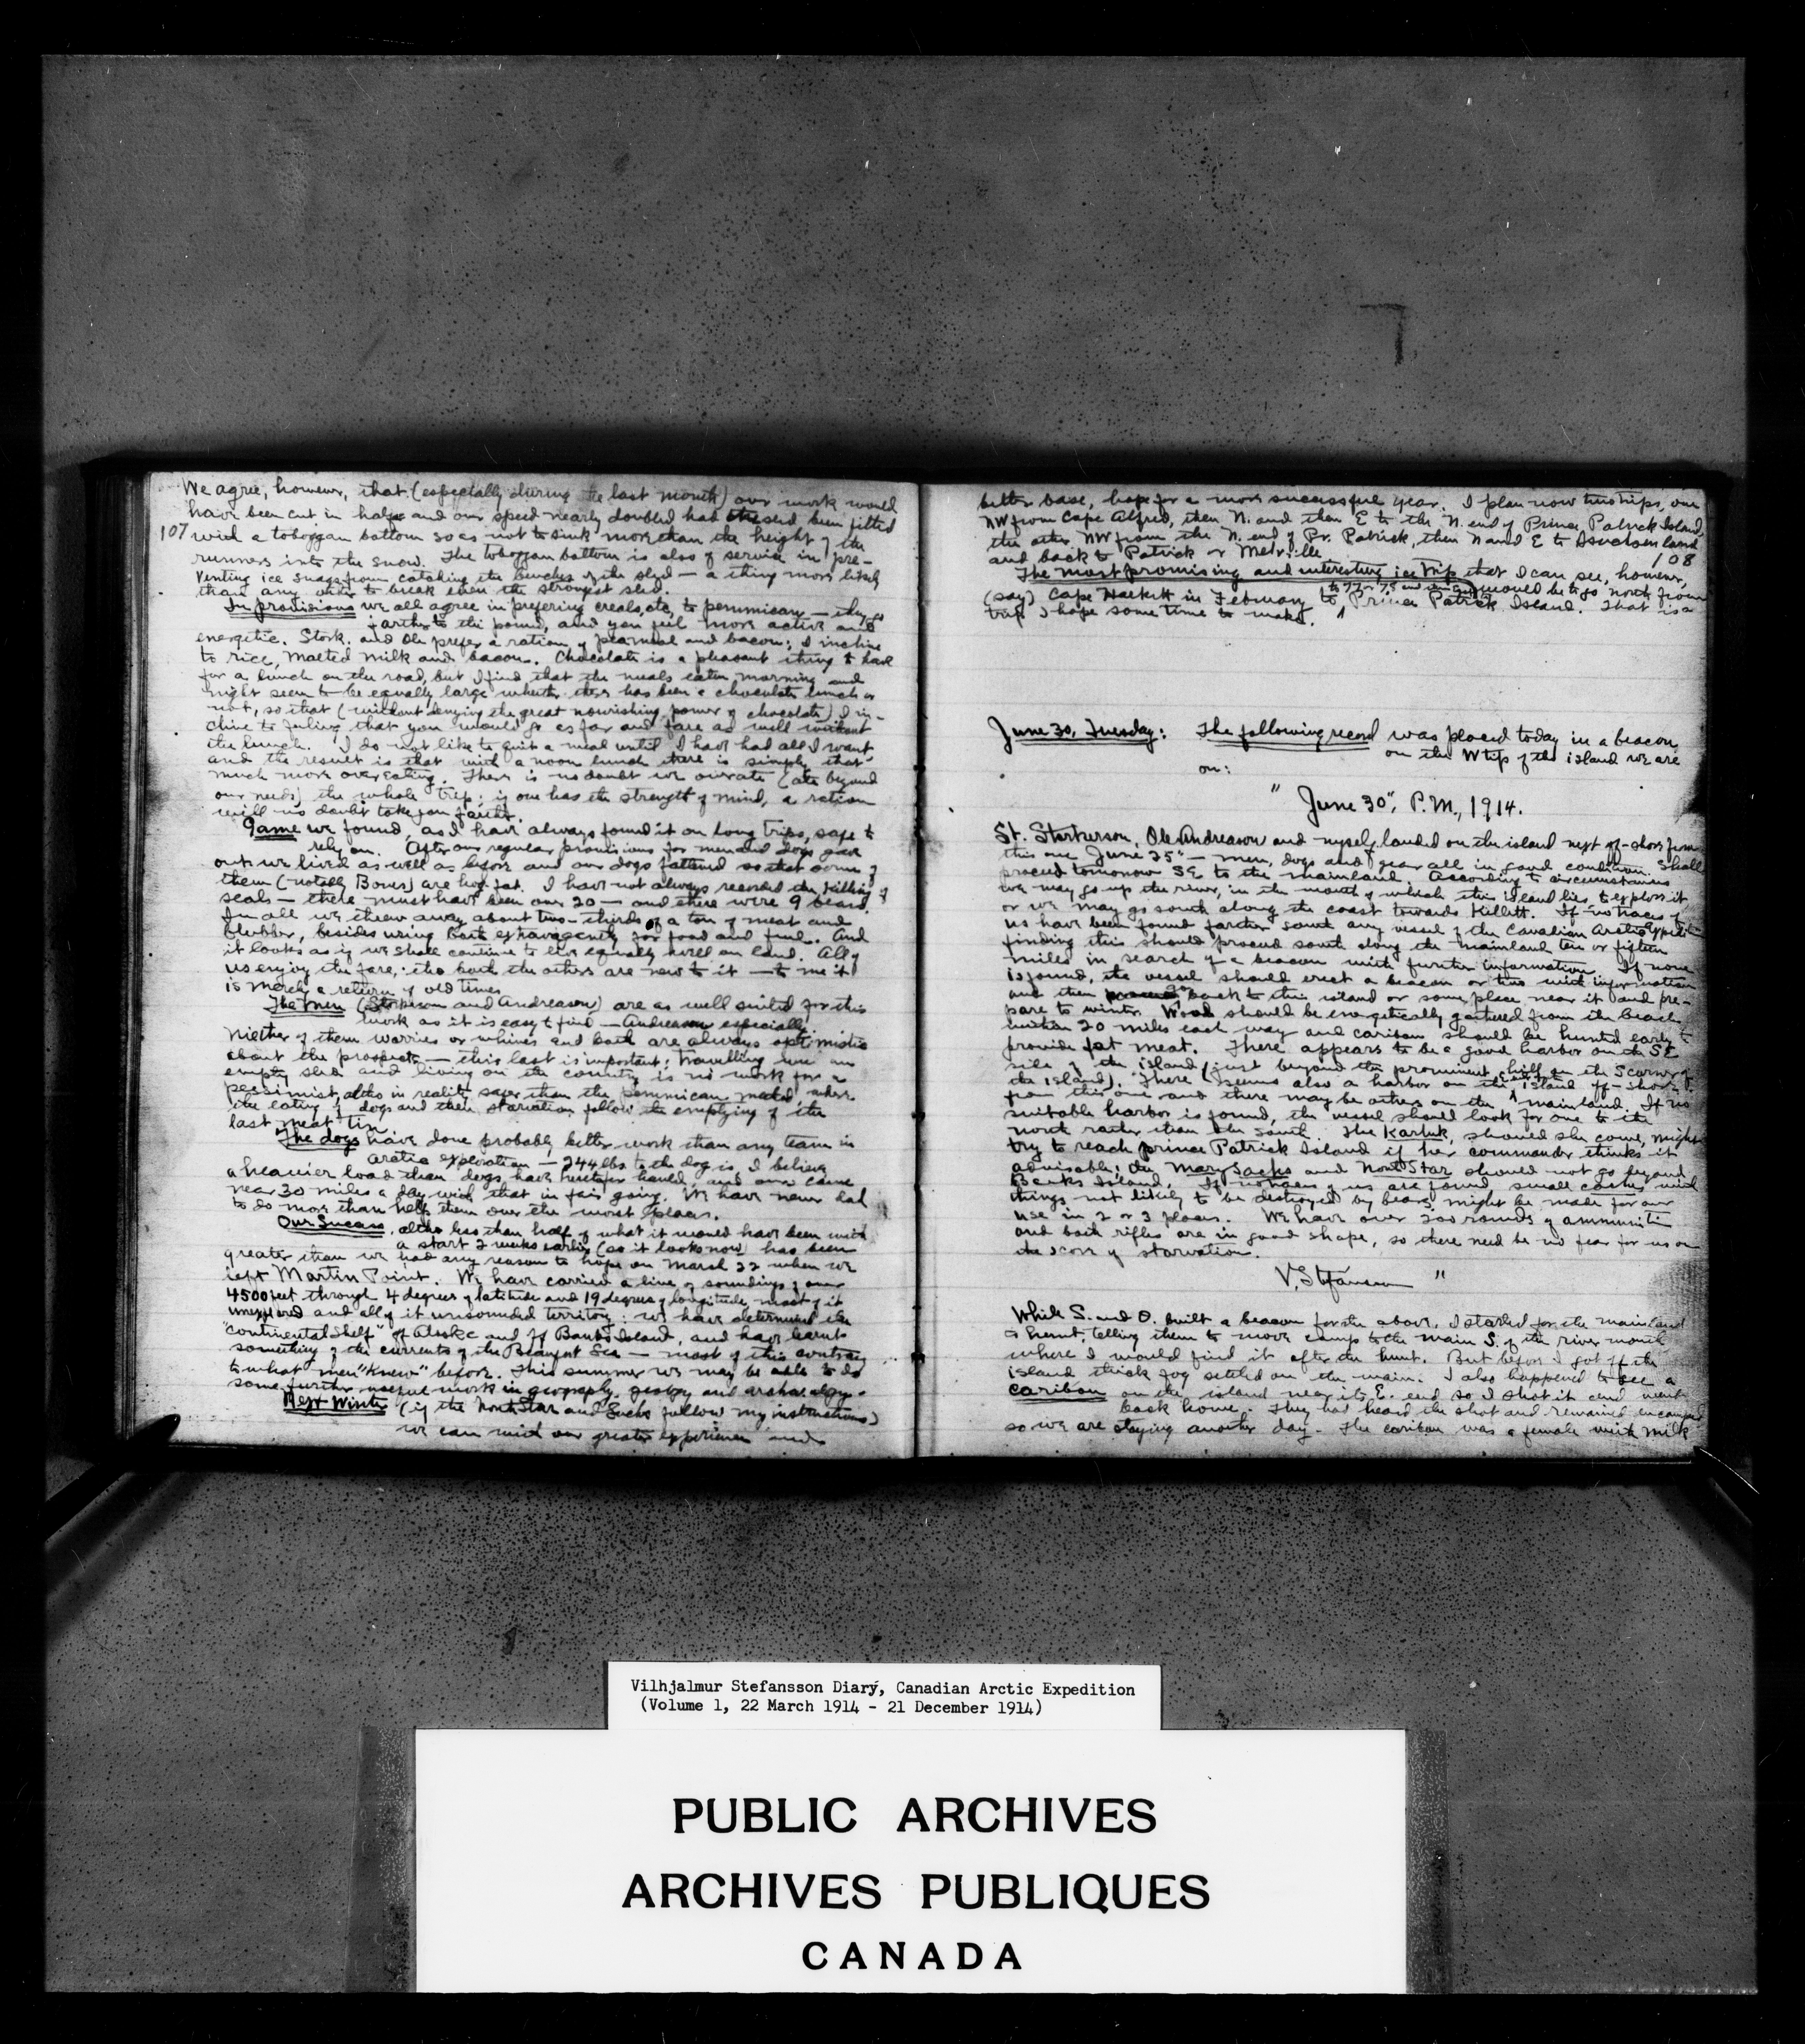 We agree, however, that (especially during the last month) our work would
have been cut in half and our speed nearly doubled had the sled been fitted
107 with a toboggan bottom so as not to sink more than the height of the
runners into the snow. The toboggan bottom is also of service in pre-
venting ice snags from catching the benches of the sled — a thing more likely
than any other to break even the strongest sled.
In provisions we all agree in prefering creals, etc, to pemmican — they go
farther to the pound, and you feel more active and
energetic. Stork. and Ole prefer a ration of peameal and bacon; I incline
to rice, malted milk and bacon. Chocolate is a pleasant thing to have
for a lunch on the road, but I find that the meals eaten morning and
night seem to be equally large whether there has been a chocolate lunch or
not, so that (without denying the great nourishing power of chocolate) I in-
cline to feeling that you would go as far and fare as well without
the lunch. I do not like to quit a meal until I have had all I want
and the result is that with a noon lunch there is simply that
much more overeating. There is no doubt we overate (ate beyond
our needs) the whole trip; if one has the strength of mind, a ration
will no doubt take you farther.
Game we found, as I have always found it on long trips, safe to
rely on. After our regular provisions for men and dogs gave
out we lived as well as before and our dogs fattened so that some of
them (notably Bones) are hog fat. I have not always recorded the killing of
seals — there must have been over 20 — and there were 9 bears.
In all we threw away about two-thirds of a ton of meat and
blubber, besides using both extravagantly for food and fuel. And
it looks as if we shall continue to live equally well on land. All of
us enjoy the fare, tho both the others are new to it — to me it
is merely a return of old times
The men (Storkerson and Andreason) are as well suited for this
work as it is easy to find — Andreason especially.
Niether of them worries or whines and both are always optimistic
about the prospects — this last is important: travelling with an
empty sled and living on the country is no work for a
pessimist, altho in reality safer than the pemmican method where
the eating of dogs and then starvation follow the emptying of the
last meat tin.
The dogs have done probably better work than any team in
arctic exploration — 244 lbs to the dog is, I believe,
a heavier load than dogs have heretofor hauled, and our came
near 30 miles a day with that in fair going. We have never had
to do more than help them over the worst places.
Our Success, altho less than half of what it would have been with
a start 2 weeks earlier (so it looks now) has been
greater than we had any reason to hope on March 22 when we
left Martin Point. We have carried a line of soundings of over
4500 feet through 4 degrees of latitude and 19 degrees of longitude, most of it
unexplored and all of it unsounded territory; we have determined the
"continental shelf" of Alaska and of Banks Island, and have learnt
something of the currents of the Beaufort Sea — most of this contrary
to what men "knew" before. This summer we may be able to do
some further useful work in geography, geology and archaeology.
Next Winter (if the North Star and Sachs follow my instructions)
we can with our greater experience and
better base, hope for a more successful year. I plan now two trips, one
NW from Cape Alfred, then N. and then E to the N. end of Prince Patrick Island,
the other NW from the N. end of Pr. Patrick, then N and E to
and back to Patrick or Melville.
108
The most promising and interesting ice trip that I can see, however,
to 77 or 75 and then would be to go north from
(say) Cape Halkett in February to Prince Patrick Island. That is a
trip I hope some time to make.
June 30, Tuesday: The following record was placed today in a beacon
on the W tip of the island we are
on:
" June 30", P.M., 1914.
St. Storkerson, Ole Andreason and myself landed on the island next off-shore from
this one June 25" — men, dogs and gear all in good condition. Shall
proceed tomorrow SE to the mainland. According to circumstances
we may go up the river, in the mouth of which this island lies, to explore it
or we may go south along the coast towards Kellett. If no traces of
us have been found farther south any vessel of the Canadian Arctic Expedition
finding this should proceed south along the mainland ten or fifteen
miles in search of a beacon with further information. If none
is found, the vessel should erect a beacon or two with information
and then go back to this island or some place near it and pre-
pare to winter. Wood should be energetically gathered from the beach
within 20 miles each way and caribou should be hunted early to
provide fat meat. There appears to be a good harbor on the SE
side of the island (just beyond the prominent hill on the S corner of
the island). There seems also a harbor on the island off-shore
from this one and there may be others on the mainland. If no
suitable harbor is found, the vessel should look for one to the
north rather than the south. The Karluk, should she come, might
try to reach prince Patrick Island if her commander thinks it
advisable; the Mary Sachs and North Star should not go beyond
Banks Island. If no traces of us are found small caches with
things not likely to be destroyed by bears might be made for our
use in 2 or 3 places. We have over 200 rounds of ammunition
and both rifles are in good shape, so there need be no fear for us on
the score of starvation.
V. Stefansson "
While S. and O. built a beacon for the above, I started for the mainland
to hunt, telling them to move camp to the main S. of the river mouth
where I would find it after the hunt. But before I got off the
island thick fog settled on the main. I also happened to see a
caribou on the island near its E. end so I shot it and went
back home. They had heard the shot and remained encamped
so we are staying another day. The caribou was a female with milk
Vilhjalmur Stefansson Diary, Canadian Arctic Expedition
(Volume 1, 22 March 1914 - 21 December 1914)
PUBLIC ARCHIVES
ARCHIVES PUBLIQUES
CANADA